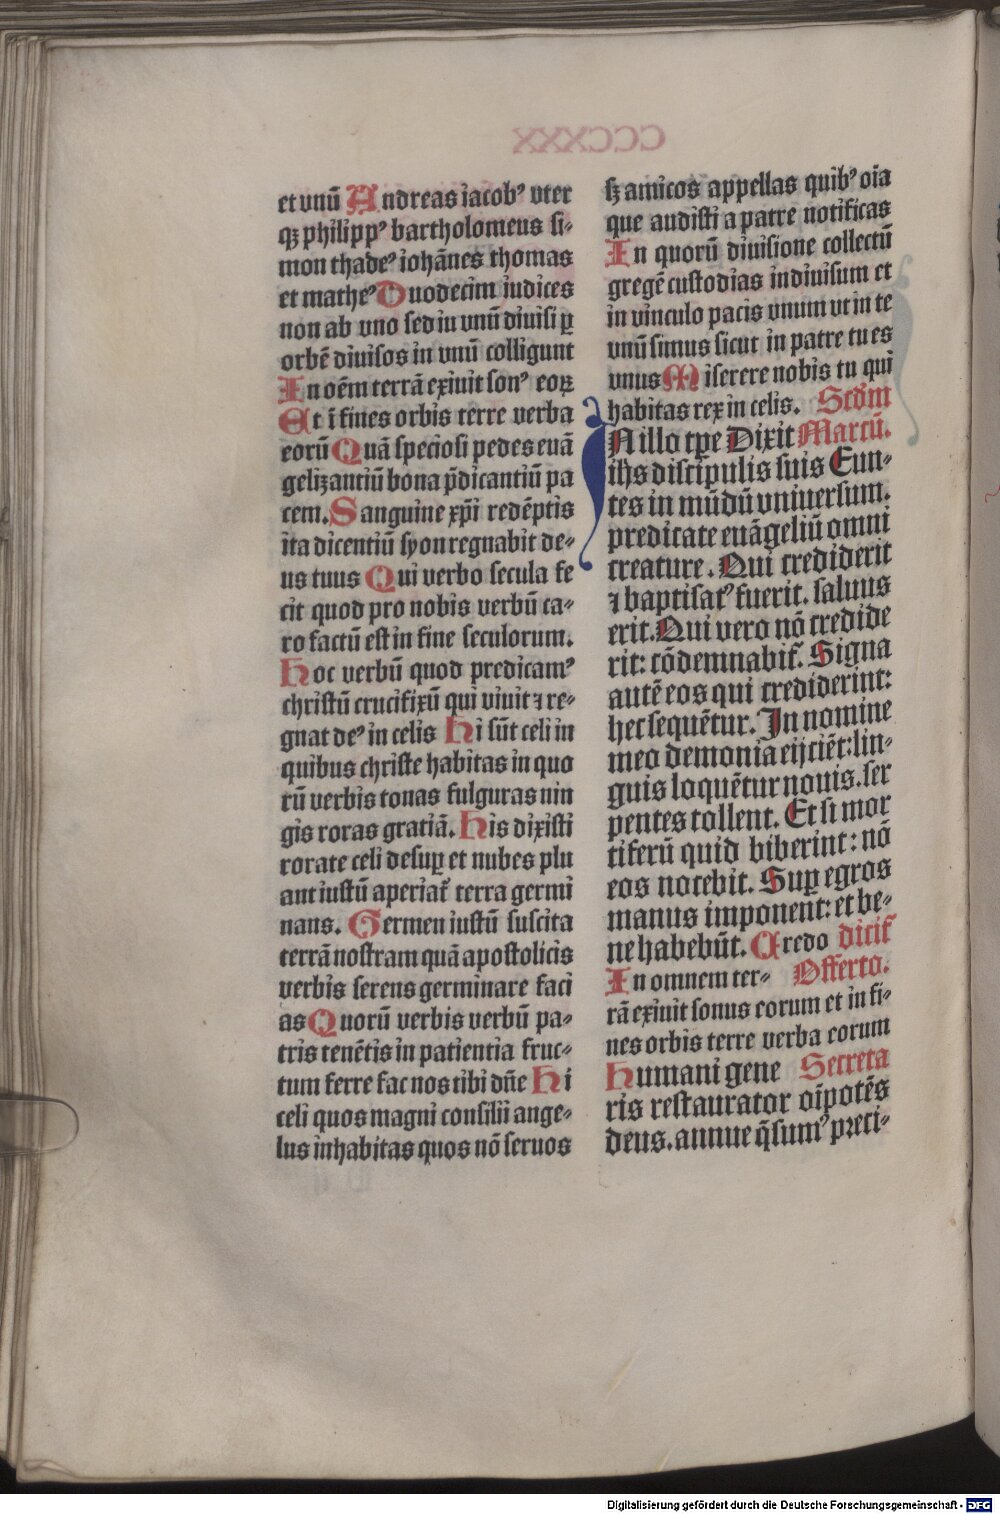 et vnū Andreas iacobꝰ vter
qꝫ philippꝰ bartholomeus si-
mon thadeꝰ iohānes thomas
et matheꝰ Duodecim iudices
non ab vno sed in vnū diuisi ꝑ
orbē diuisos in vnū colligunt
In oēm terrā exiuit sonꝰ eoꝝ
Et ī fines orbis terre verba
eorū Quā speciosi pedes euā
gelizantiū bona p̄dicantiū pa
cem. Sanguine xp̄i redēptis
ita dicentiū syon regnabit de-
us tuus Qui verbo secula fe
cit quod pro nobis verbū ca-
ro factū est in fine seculorum.
Hoc verbū quod predicamꝰ
christū crucifixū qui viuit ⁊ re-
gnat deꝰ in celis Hi sūt celi in
quibus christe habitas in quo
rū verbis tonas fulguras uin
gis roras gratiā. His dixisti
rorate celi desuꝑ et nubes plu
ant iustū aperiat᷑ terra germi
nans. Germen iustū suscita
terrā nostram quā apostolicis
verbis serens germinare faci
as Quorū verbis verbū pa-
tris tenētis in patientia fruc-
tum ferre fac nos tibi dn̄e Hi
celi quos magni consilii ange-
lus inhabitas quos nō seruos
sꝫ amicos appellas quibꝰ oīa
que audisti a patre notificas
In quorū diuisione collectū
gregē custodias indiuisum et
in vinculo pacis vnum vt in te
vnū simus sicut in patre tu es
vnus Miserere nobis tu qui
habitas rex in celis. Scd̄m
IN illo tp̄e Dixit Marcū.
ih̄s discipulis suis Eun-
tes in mūdū vniuersum.
predicate euāgeliū omni
creature. Qui crediderit
⁊ baptisatꝰ fuerit. saluus
erit. Qui vero nō credide
rit: cōdemnabit᷑. Signa
autē eos qui crediderint:
hec sequētur. In nomine
meo demonia eijciēt: lin-
guis loquētur nouis. ser
pentes tollent. Et si mor
tiferū quid biberint: nō
eos nocebit. Suꝑ egros
manus imponent: et be-
ne habebūt. Credo dicit᷑
In omnem ter- Offerto.
rā exiuit sonus eorum et in fi-
nes orbis terre verba eorum
Humani gene Secreta
ris restaurator oīpotēs
deus. annue q̄sumꝰ preci-
CCCXXX
Digitalisierung gefördert durch die Deutsche Forschungsgemeinschaft - DFG